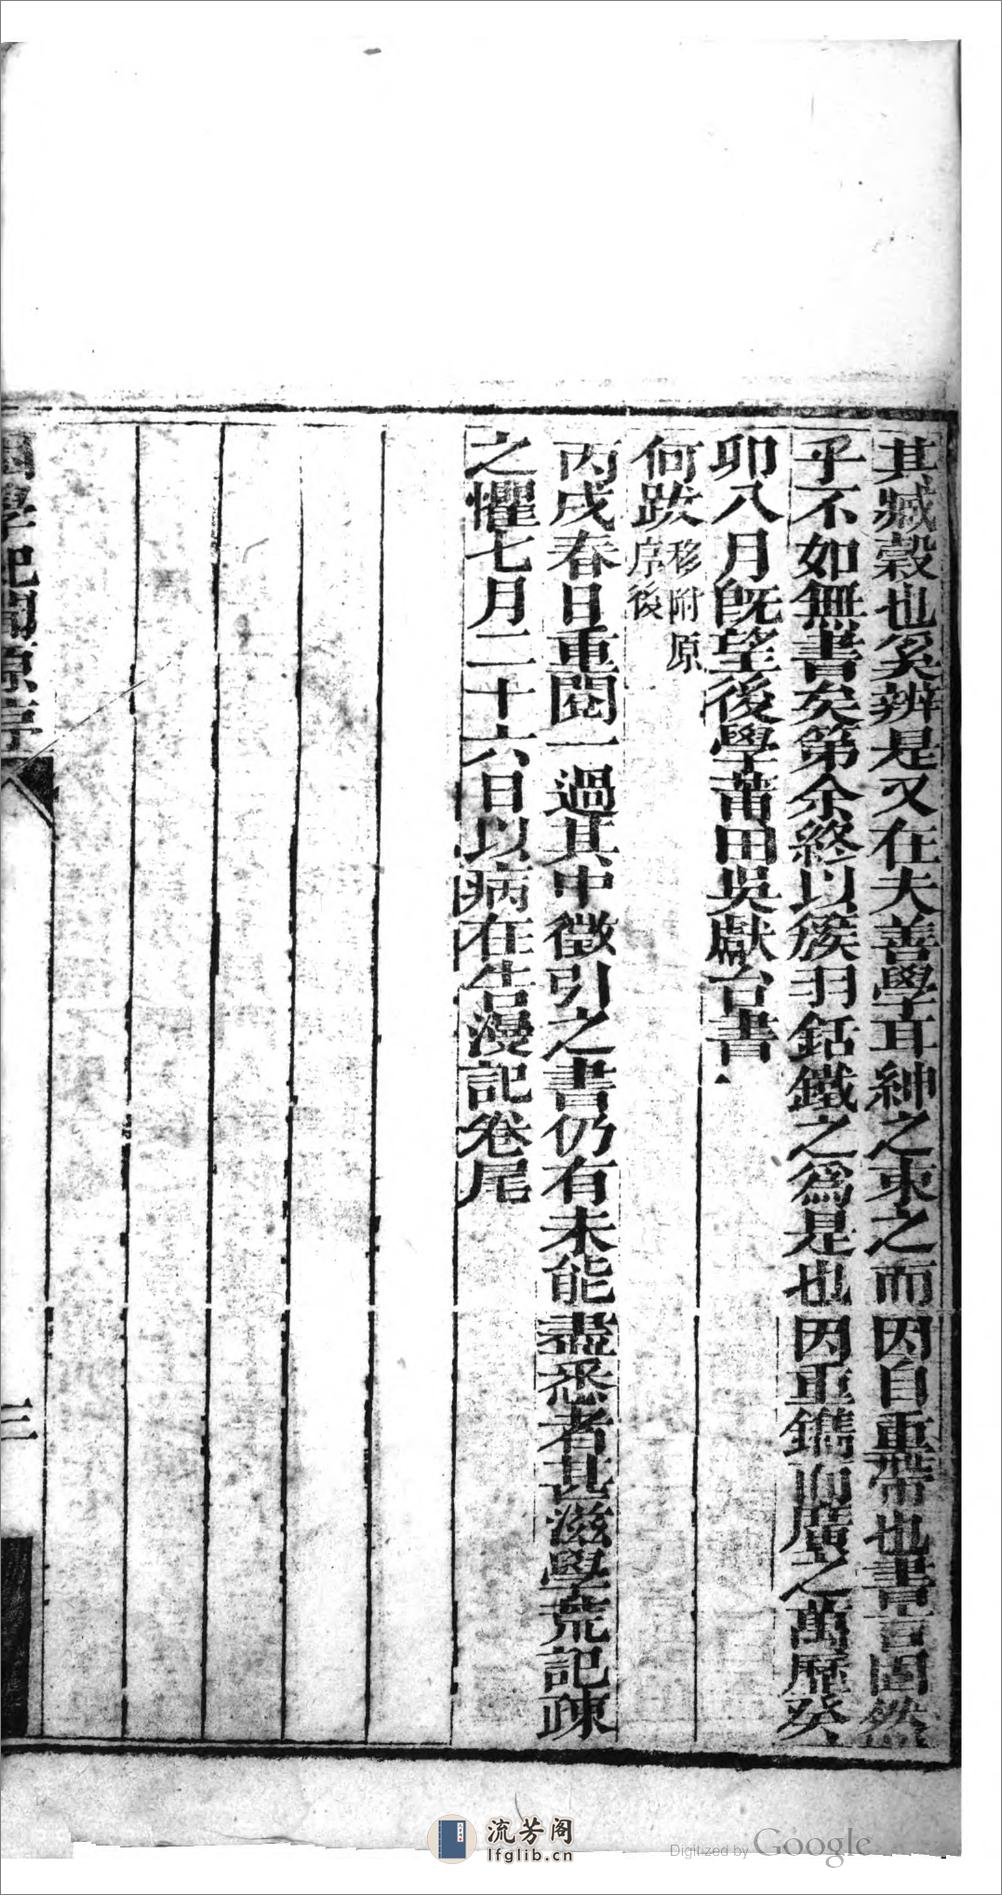 其臧穀也奚辨是又在夫善學耳紳之束之而因自重帶也書言固然
乎不如無書矣第余終以鏃羽銛鐵之為是也因重鐫而廣之萬歷癸
卯八月旣望後學莆田吳獻台書
何跋移附原序後
丙戌春日重閱一過其中徵引之書仍有未能盡悉者甚滋學荒記疎
之懼七月二十六日以病在告漫記卷尾
困學紀聞原序
三
流芳阁
lfglib.cn
Digitized by Google